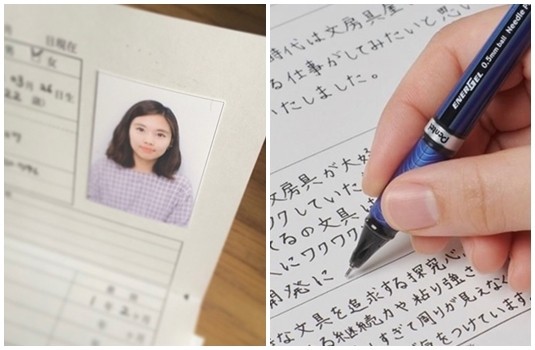 日現在
男 女
月 26日生
22 歳)
年 2ヶ月
時代は文房具屋
る仕事がしてみたいと思い
いたしました。
文房具が大好
クしていた
てるの文具は
人にワクワク
開発に
な文具を追求する探究心、
る継続力や粘り強さ
すぎて周りが見えな
をつけています。
ENERGEL 0.5mm ball Needle
Pentel